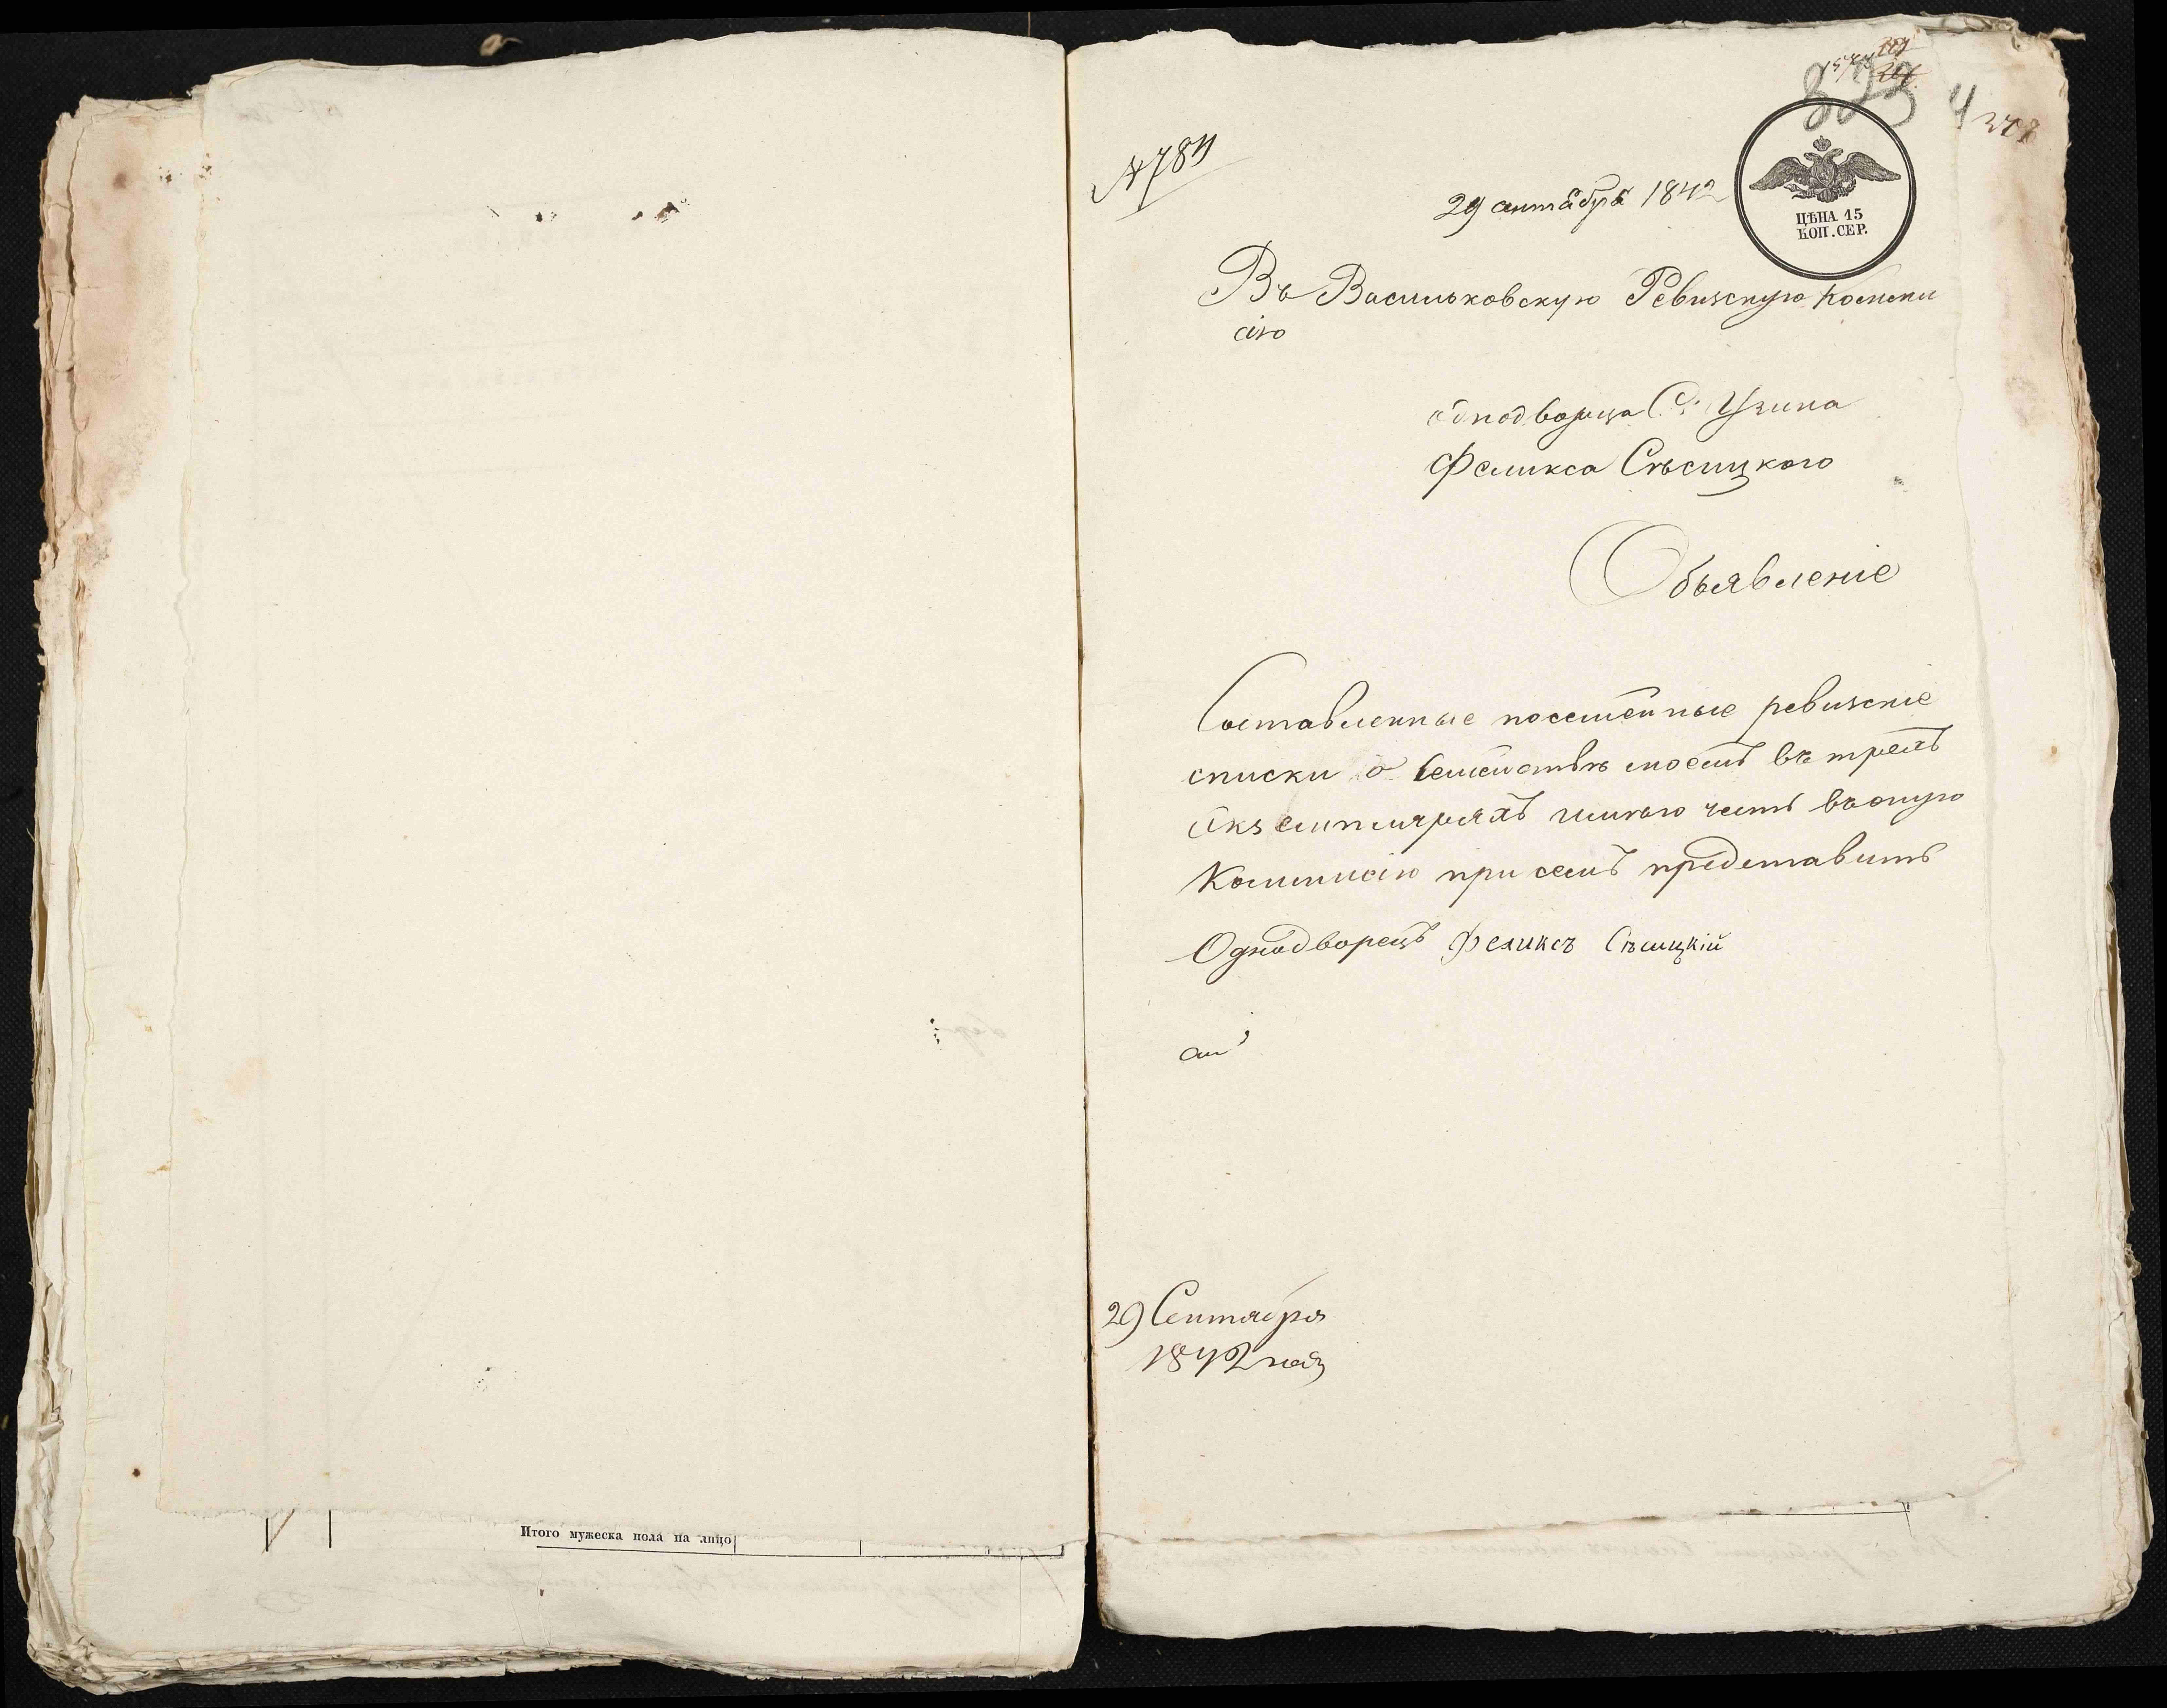 Итого мужеска пола на лицо
823
4
№ 784
29 сентября 1842
ЦѢНА 15
КОП. СЕР.
Въ Васильковскую Ревизскую Комми
сію
однодворца С. Узина
Феликса Сѣсицкого
Объявленіе
Составленные посемейные ревизскіе
списки о семействѣ моемъ въ трехъ
екземплярахъ имѣю честь въ оную
Коммисію при семъ представить
Однодворецъ Феликсъ Сѣсицкій
29 Сентября
1842 года